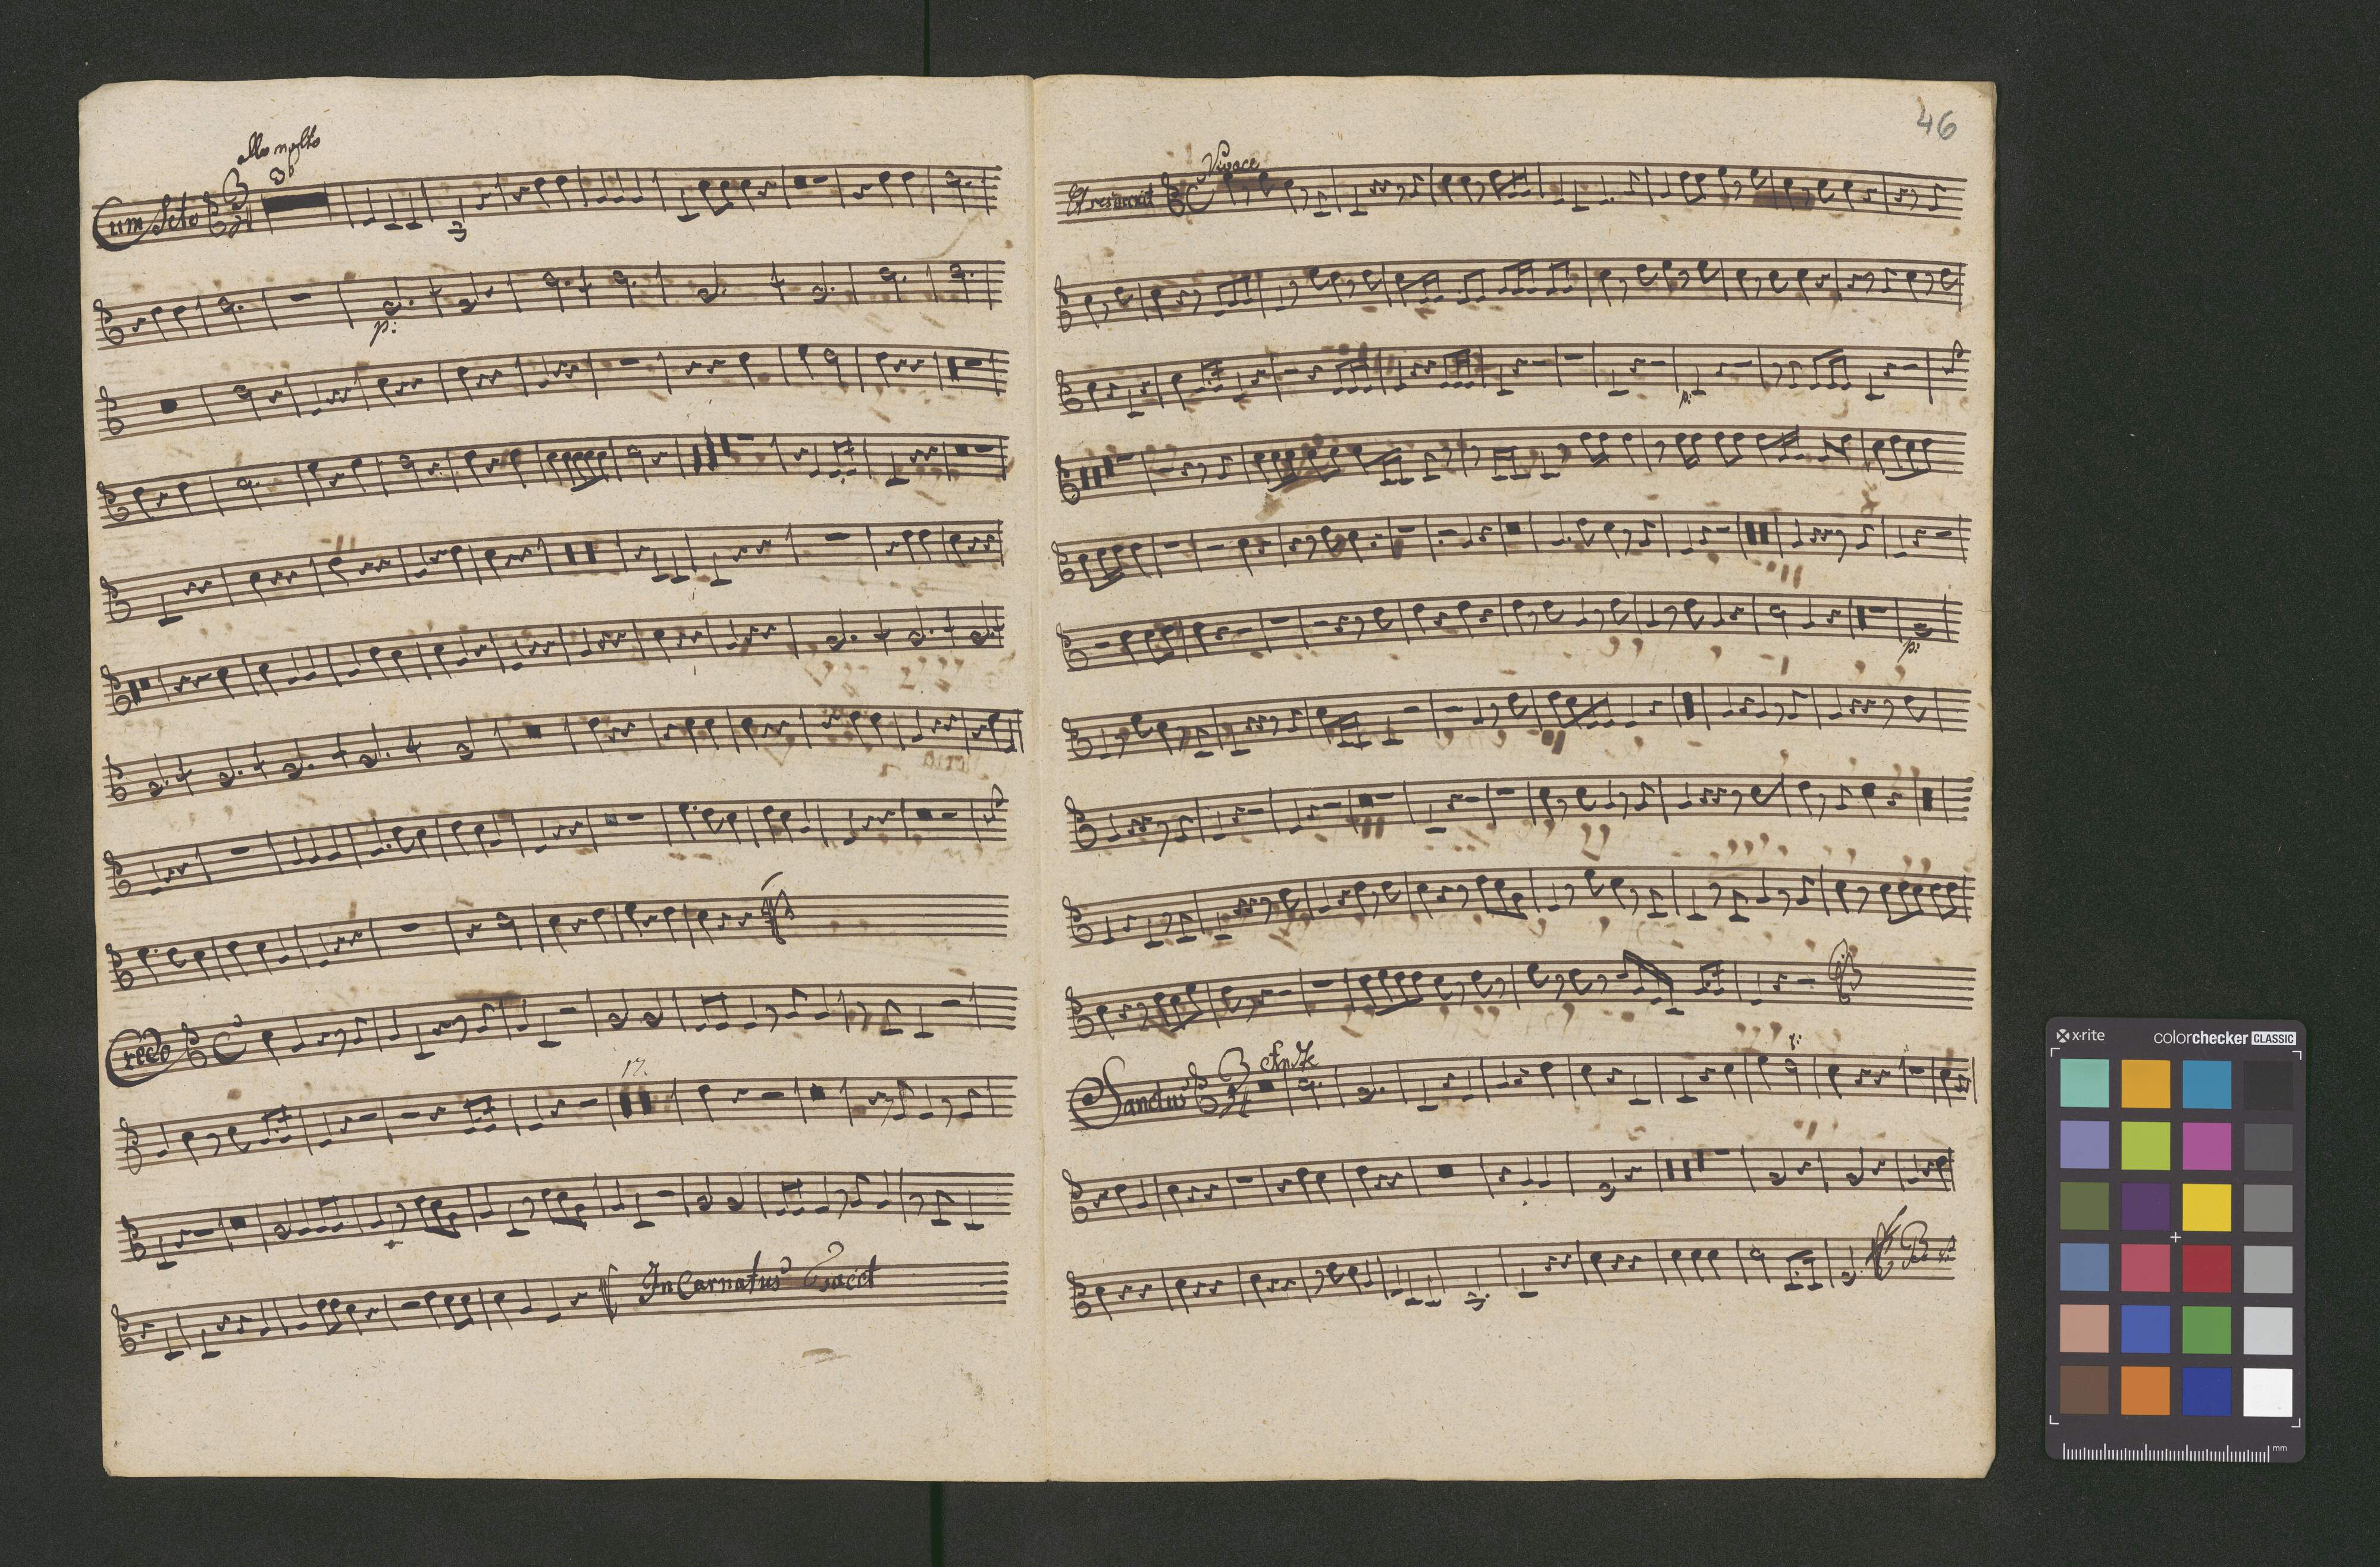 allo molto
36
Cum Scto 3
p:
Credo C
17.
InCarnatus Tacet
46
Vivace
Et resurrexit C
p:
p:
Andte
Sanctus 3/4
x-rite colorchecker CLASSIC
mm